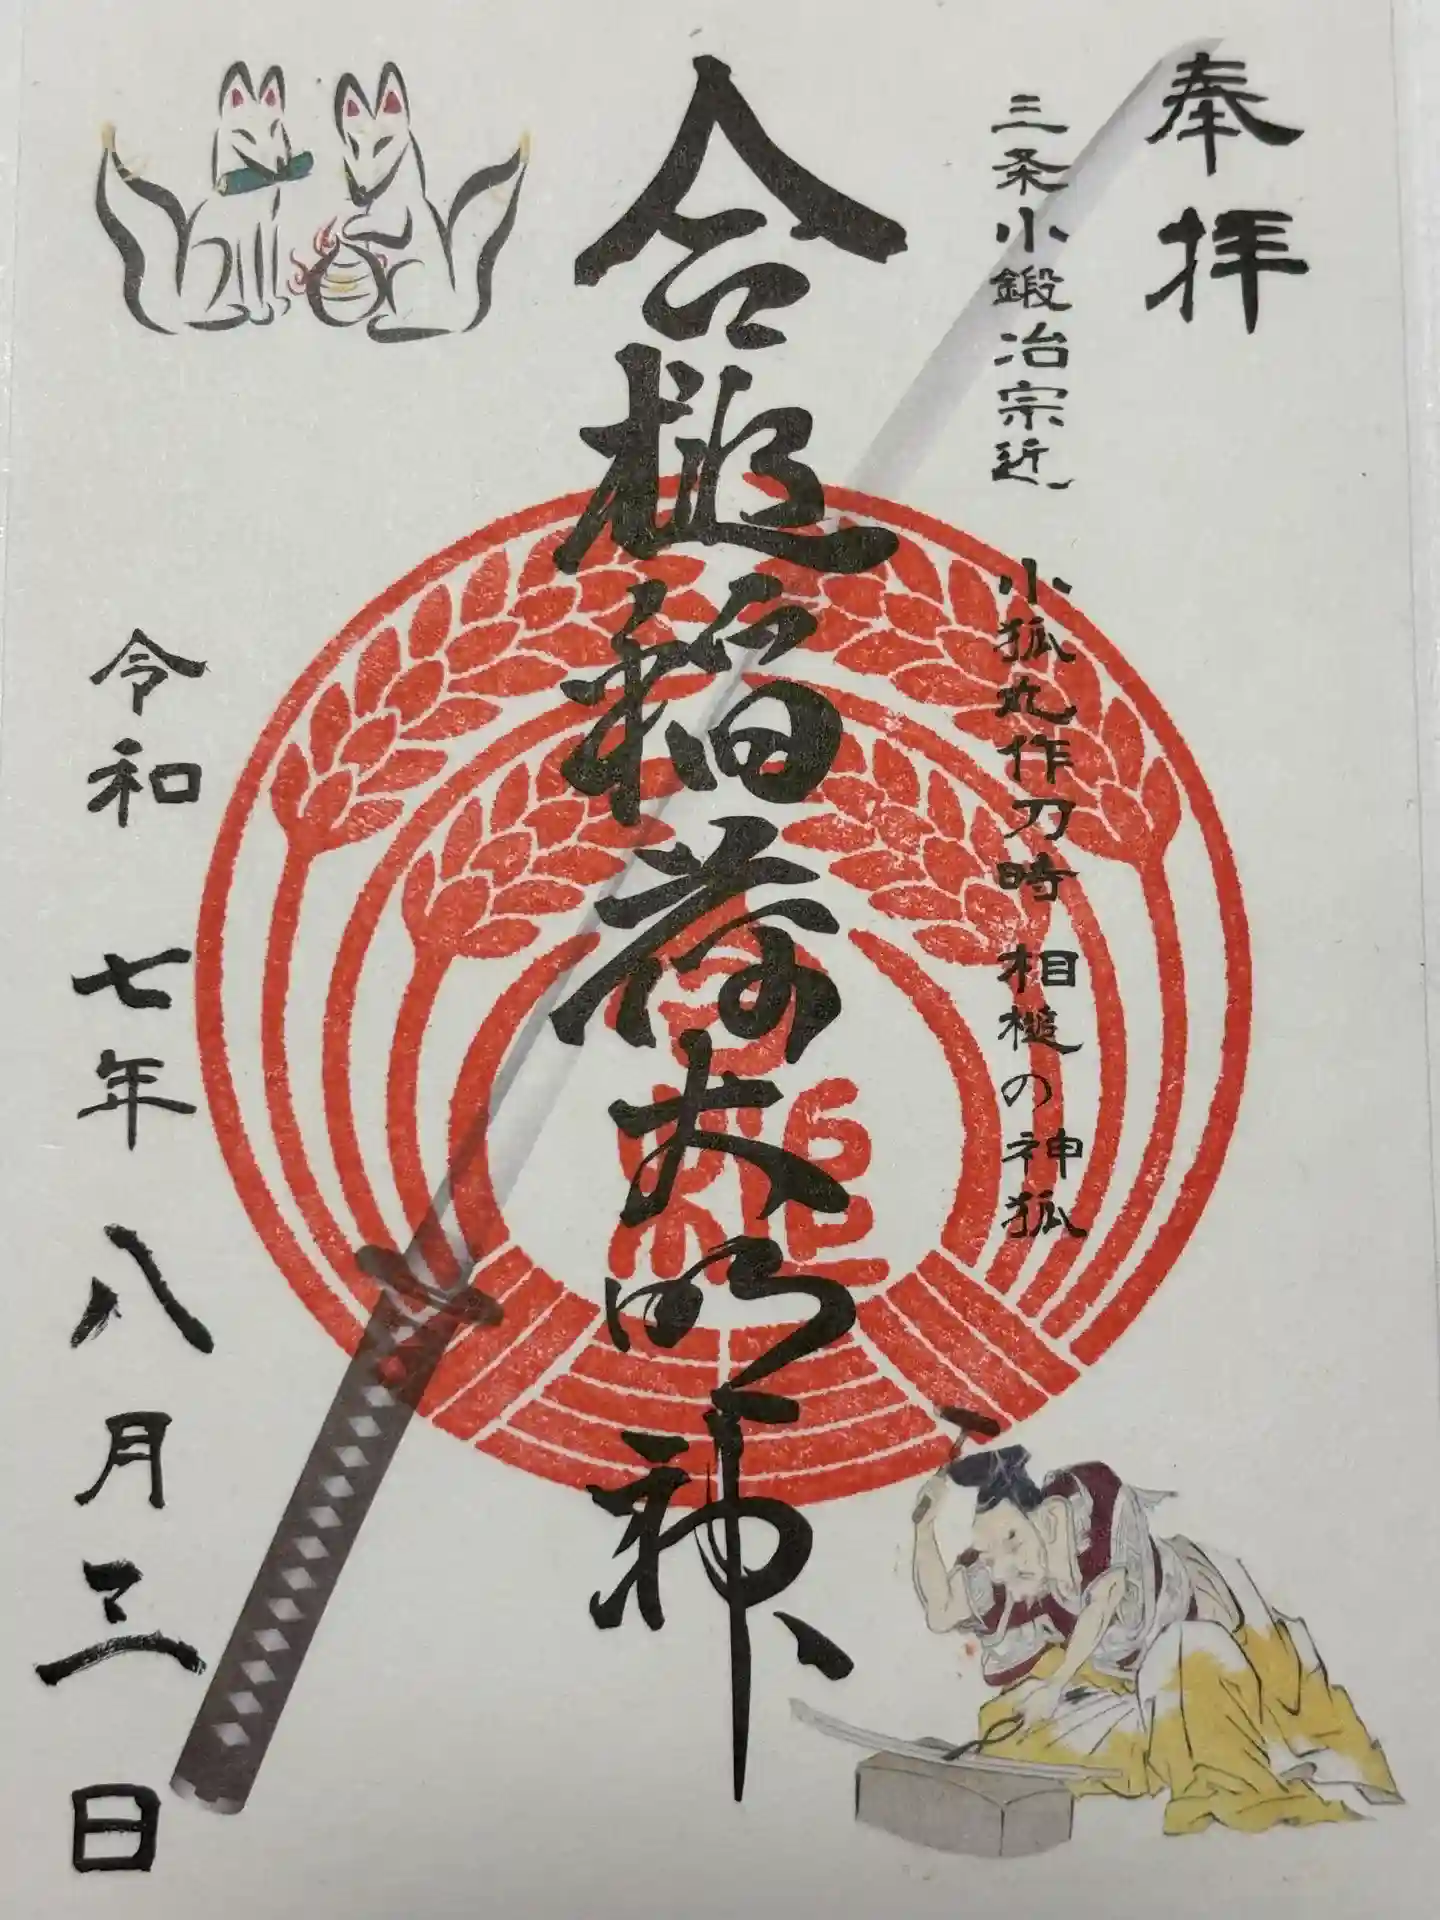 奉拝
三条小鍛冶宗近 小狐丸作刀時 相槌の神狐
合槌稲荷大明神
令和七年八月三日